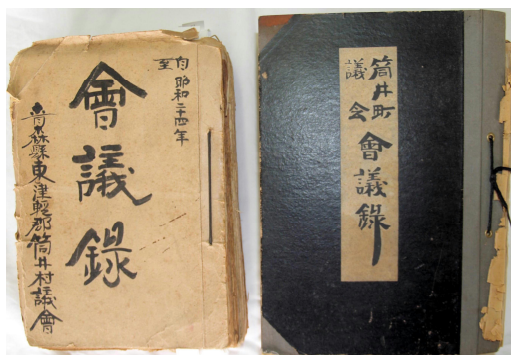 自 昭和二十四年
至
會議錄
青森縣東津輕郡筒井村議會
筒井町
議会
會議錄